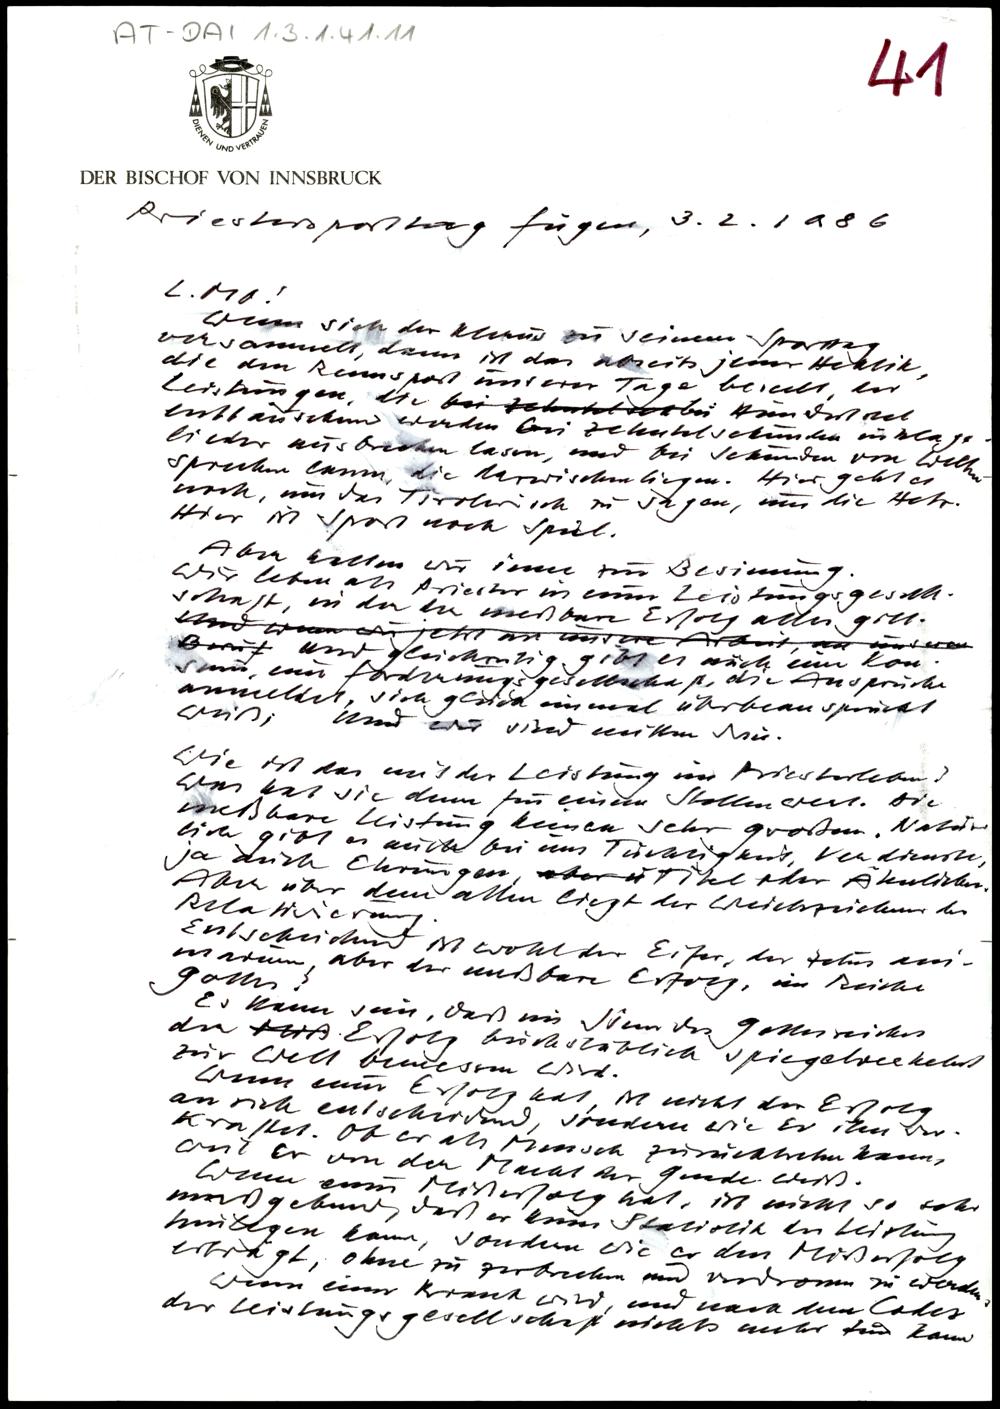 AT-DAI 1.3.1.41.11
41
DIENEN UND VERTRAUEN
DER BISCHOF VON INNSBRUCK
Priestersporttag Fügen, 3.2.1986
L.MB!
Wenn sich der Klerus zu seinem Sporttag
versammelt, dann ist das abseits jener Hektik,
die den Rennsport unserer Tage beseelt, der
Leistungen, die bei Zehntelsekun Hundertstel
enttäuschend werden bei Zehntelsekunden in Klage-
lieder ausbrechen lassen, und bei Sekunden von Welten
sprechen kann, die dazwischenliegen. Hier geht es
noch, um das Tirolerisch zu sagen, um die Hetz.
Hier ist Sport noch Spiel.
Aber halten wir inne zur Besinnung.
Wir leben als Priester in einer Leistungsgesell-
schaft, in der der meßbare Erfolg alles gilt.
Und wenn wir jetzt an unsere Arbeit, an unseren
Beruf Und gleichzeitig gibt es auch eine Kon-
sum, eine Forderungsgesellschaft, die Ansprüche
anmeldet, sich gleich einmal überbeansprucht
weiß; Und wir sind mitten drin.
Wie ist das mit der Leistung im Priesterleben?
Was hat sie denn für einen Stellenwert. Die
meßbare Leistung keinen sehr großen. Natür-
lich gibt es auch bei uns Tüchtigkeit, Verdienste,
ja auch Ehrungen, aber Titel oder Ähnliches.
Aber über dem allen liegt der Weichzeichner der
Relativierung.
Entscheidend ist wohl der Eifer, der zelus ani-
marum, aber der meßbare Erfolg, im Reiche
Gottes?
Es kann sein, daß im Sinn des Gottesreiches
der Miß Erfolg buchstäblich spiegelverkehrt
zur Welt bemessen wird.
Wenn einer Erfolg hat, ist nicht der Erfolg
an sich entscheidend, sondern wie Er ihn ver-
kraftet. Ob er als Mensch zurücktreten kann,
weil Er von der Macht der Gnade weiß.
Wenn einer Mißerfolg hat, ist nicht so sehr
maßgebend, daß er keine Statistik der Leistung
hinlegen kann, sondern wie er den Mißerfolg
erträgt, ohne zu zerbrechen und verdrossen zu werden.
Wenn einer Krank wird, und nach dem Codex
der Leistungsgesellschaft nichts mehr tun kann